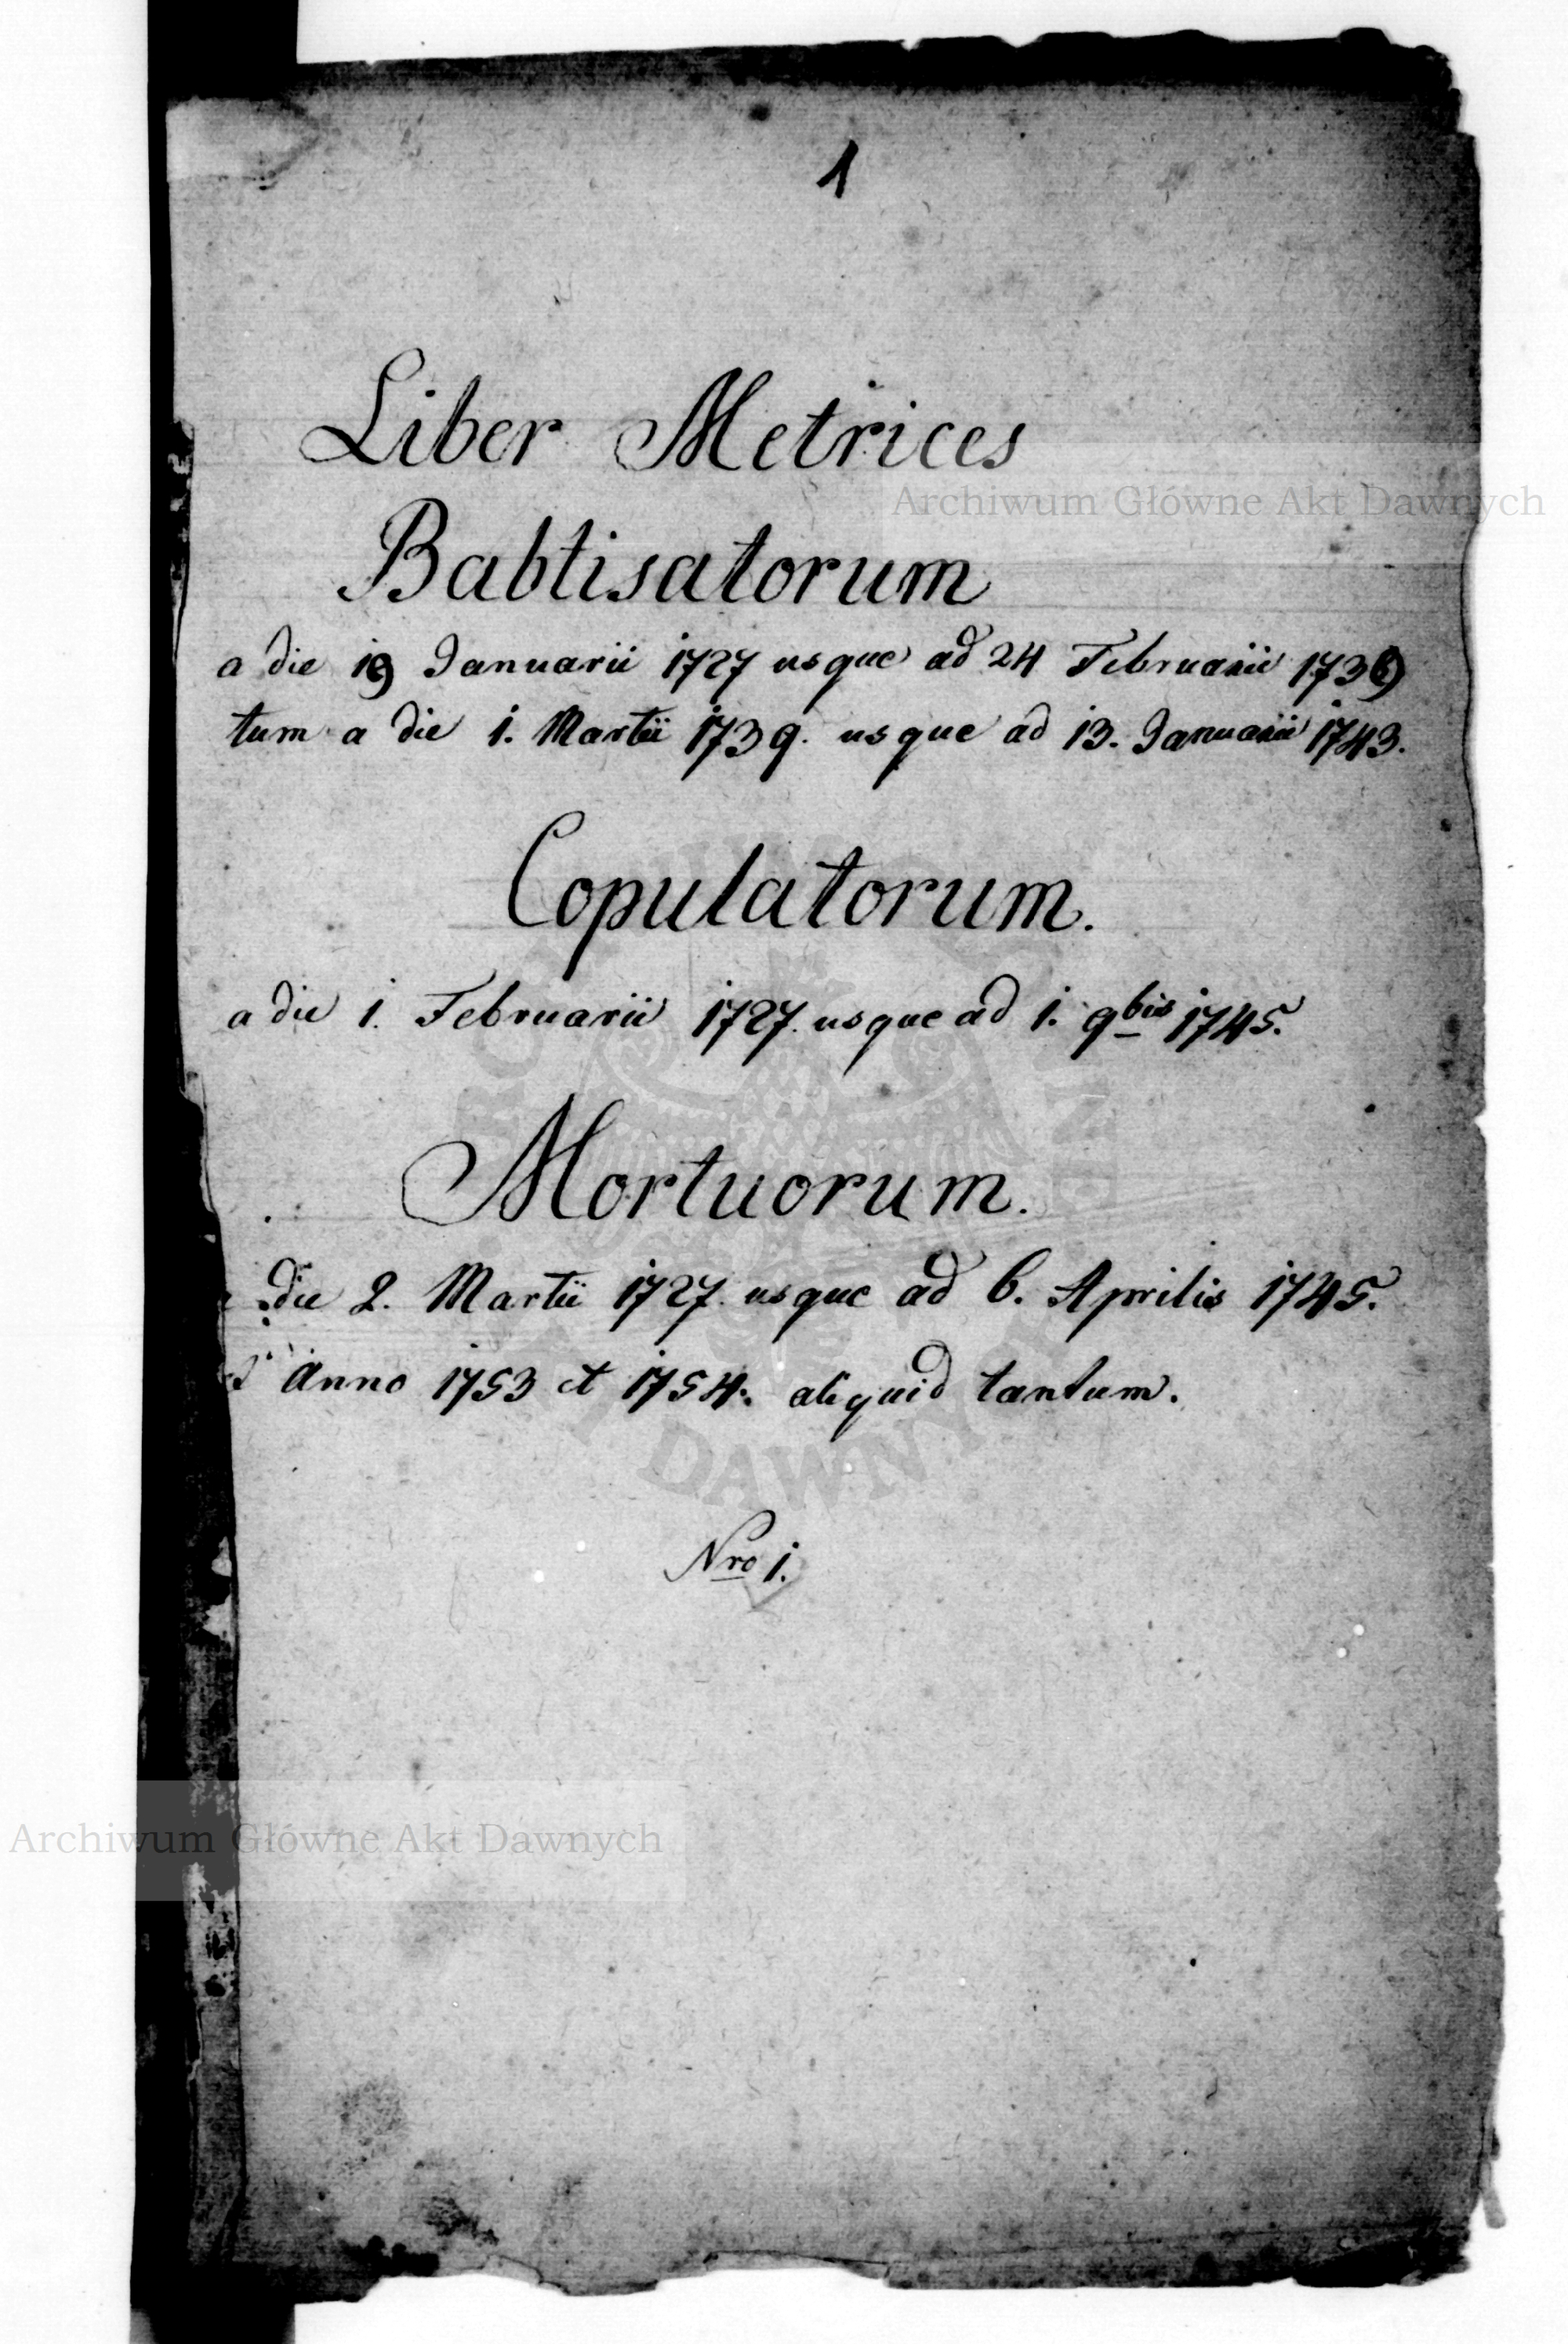 1
Liber Metrices
Archiwum Główne Akt Dawnych
Babtisatorum
a die 19 Januarii 1727 usque ad 24 Februarii 1736
tum a die 1. Martii 1739. usque ad 13. Januarii 1743.
Copulatorum.
a die 1. Februarii 1727. usque ad 1. 9bis 1745.
Mortuorum.
die 2. Martii 1727. usque ad 6. Aprilis 1745.
Anno 1753 et 1754. aliquid tantum.
DAWNYCH
Nro 1.
Archiwum Główne Akt Dawnych